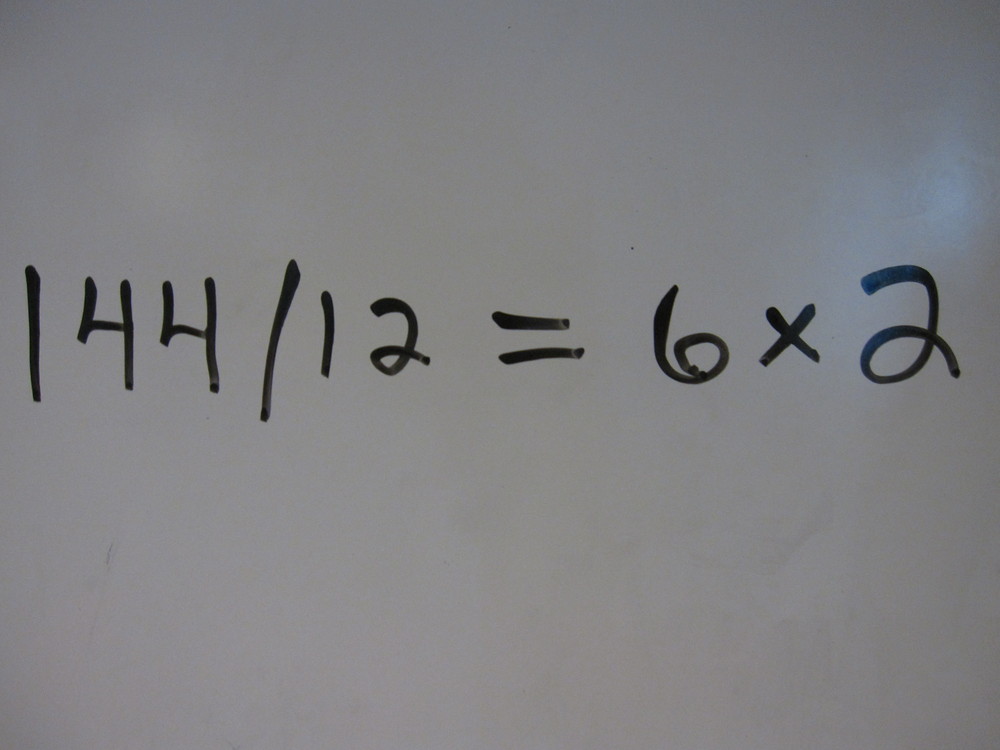 144/12 = 6 × 2